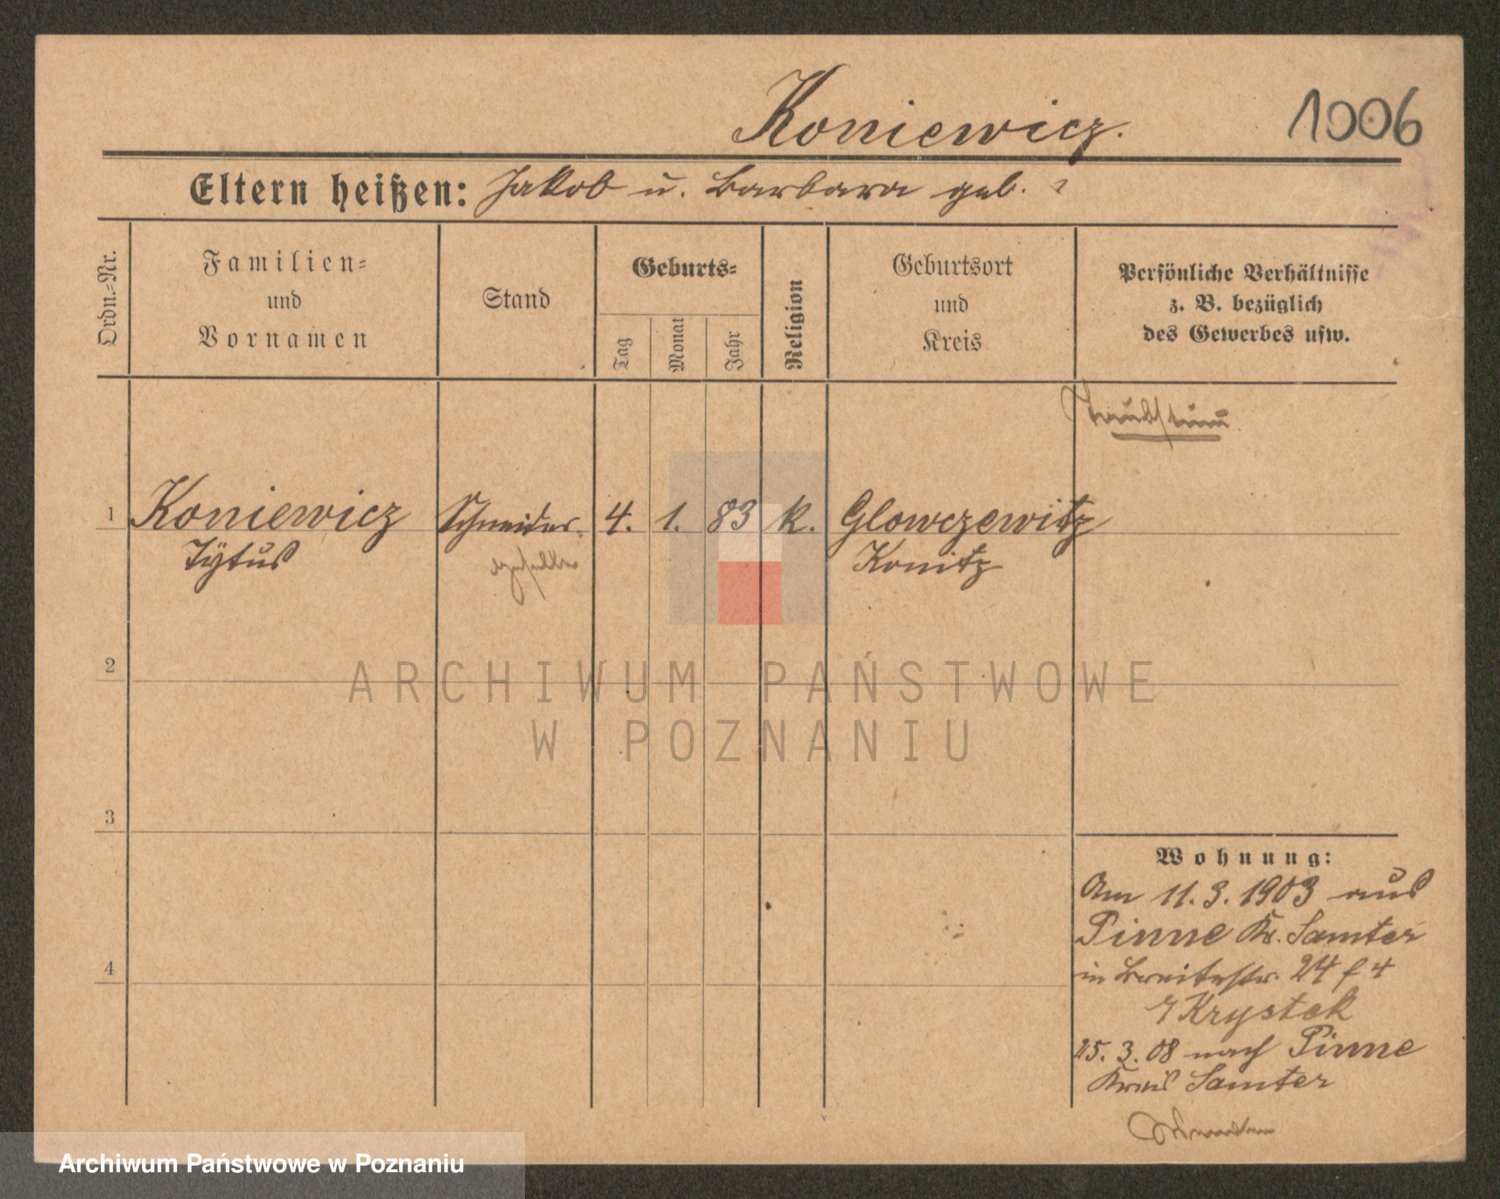 Koniewicz.
1006
Eltern heißen: Jakob u. Barbara geb. ?
Ordn.-Nr.
Familien-
und
Vornamen
Stand
Geburts-
Tag
Monat
Jahr
Religion
Geburtsort
und
Kreis
Persönliche Verhältnisse
z. B. bezüglich
des Gewerbes usw.
Taubstumm
1 Koniewicz Schneider 4. 1. 83 k. Glowczewitz
Tÿtus geselle Konitz
2
ARCHIWUM PAŃSTWOWE
W POZNANIU
3
Wohnung:
Am 11.3.1903 aus
Pinne Kr. Samter
4
in Breitestr. 24 f 4
Krystek
25.3.08 nach Pinne
Kreis Samter
Archiwum Państwowe w Poznaniu